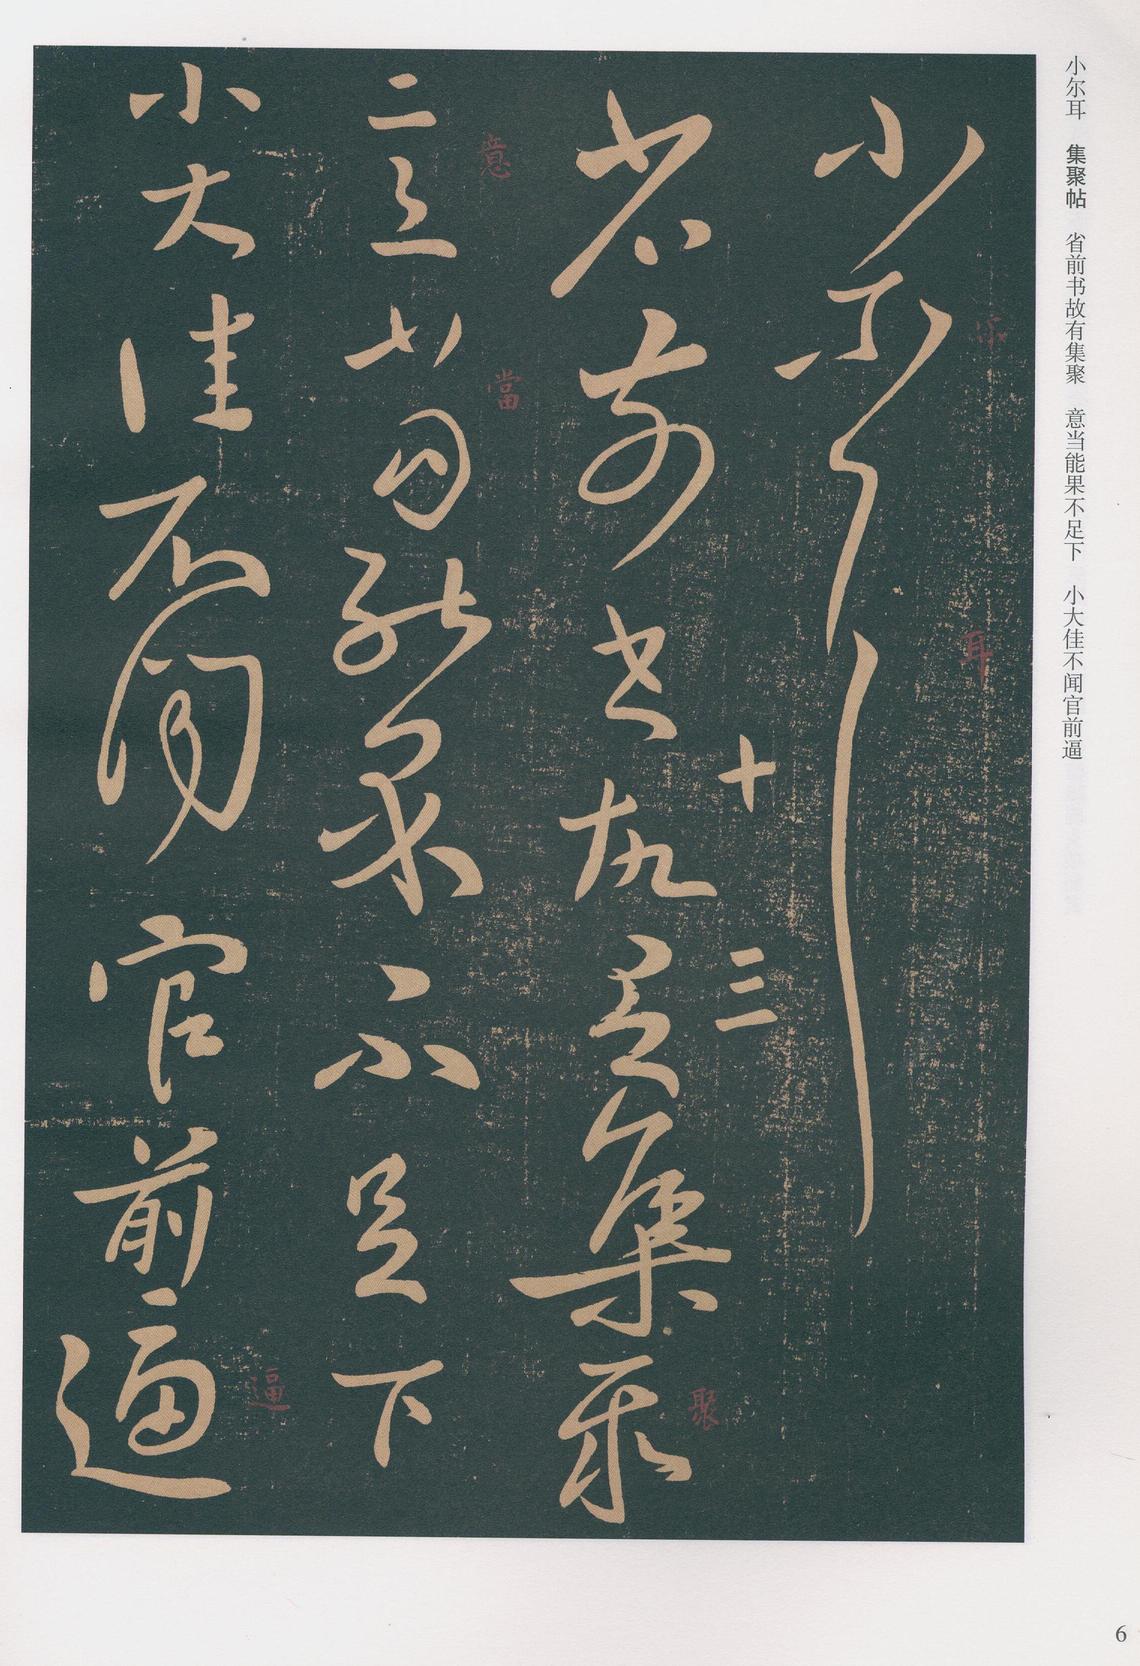 小尔耳 集聚帖 省前书故有集聚 意当能果不足下 小大佳不闻官前逼
小尔耳
尔
耳
十三
省前书故有集聚
聚
意當能果不足下
意
當
小大佳不闻官前逼
逼
6